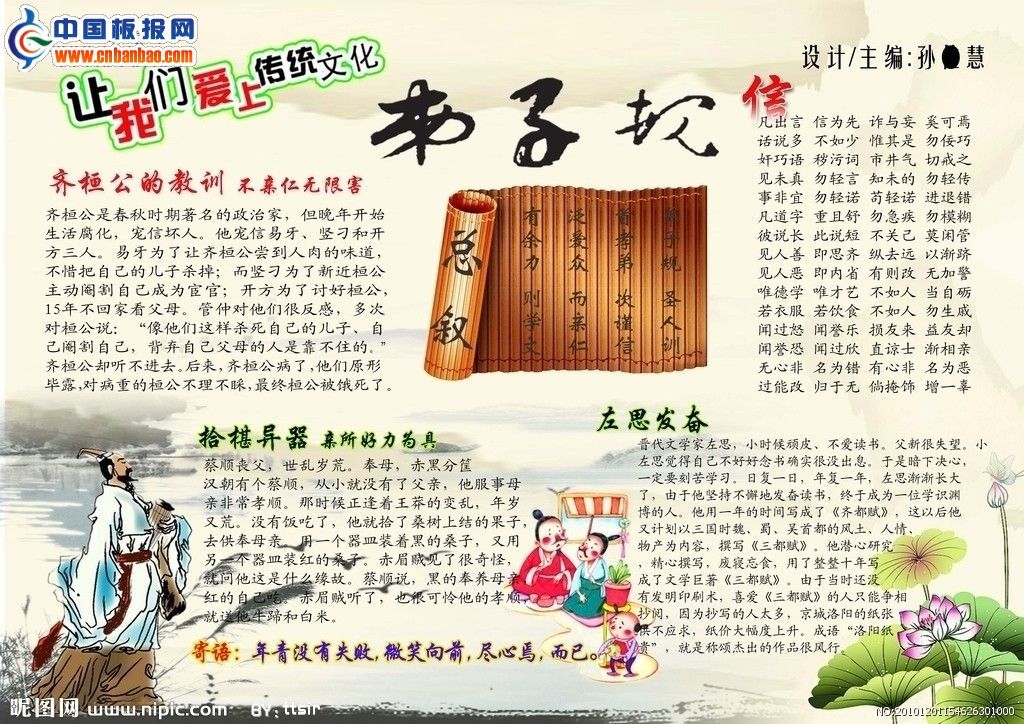 中国板报网
www.cnbanbao.com
让我们爱上传统文化
弟子规
设计/主编:孙
慧
信
凡出言 信为先 诈与妄 奚可焉
话说多 不如少 惟其是 勿佞巧
奸巧语 秽污词 市井气 切戒之
见未真 勿轻言 知未的 勿轻传
事非宜 勿轻诺 苟轻诺 进退错
凡道字 重且舒 勿急疾 勿模糊
彼说长 此说短 不关己 莫闲管
见人善 即思齐 纵去远 以渐跻
见人恶 即内省 有则改 无加警
唯德学 唯才艺 不如人 当自砺
若衣服 若饮食 不如人 勿生戚
闻过怒 闻誉乐 损友来 益友却
闻誉恐 闻过欣 直谅士 渐相亲
无心非 名为错 有心非 名为恶
过能改 归于无 倘掩饰 增一辜
齐桓公的教训 不亲仁无限害
齐桓公是春秋时期著名的政治家，但晚年开始
生活腐化，宠信坏人。他宠信易牙、竖刁和开
方三人。易牙为了让齐桓公尝到人肉的味道，
不惜把自己的儿子杀掉；而竖刁为了新近桓公
主动阉割自己成为宦官；开方为了讨好桓公，
15年不回家看父母。管仲对他们很反感，多次
对桓公说：“像他们这样杀死自己的儿子、自
己阉割自己，背弃自己父母的人是靠不住的。”
齐桓公却听不进去。后来，齐桓公病了，他们原形
毕露，对病重的桓公不理不睬，最终桓公被饿死了。
总叙
弟子规 圣人训
首孝弟 次谨信
泛爱众 而亲仁
有余力 则学文
拾椹异器 亲所好力为具
蔡顺丧父，世乱岁荒。奉母，赤黑分筐
汉朝有个蔡顺，从小就没有了父亲，他服事母
亲非常孝顺。那时候正逢着王莽的变乱，年岁
又荒。没有饭吃了，他就拾了桑树上结的果子，
去供奉母亲。用一个器皿装着黑的桑子，又用
另一个器皿装红的桑子。赤眉贼见了很奇怪，
就问他这是什么缘故。蔡顺说，黑的奉养母亲
红的自己吃。赤眉贼听了，也很可怜他的孝顺
就送他牛蹄和白米。
左思发奋
晋代文学家左思，小时候顽皮、不爱读书。父新很失望。小
左思觉得自己不好好念书确实很没出息。于是暗下决心，
一定要刻苦学习。日复一日，年复一年，左思渐渐长大
了，由于他坚持不懈地发奋读书，终于成为一位学识渊
博的人。他用一年的时间写成了《齐都赋》，这以后他
又计划以三国时魏、蜀、吴首都的风土、人情、
物产为内容，撰写《三都赋》。他潜心研究
精心撰写，废寝忘食，用了整整十年写
成了文学巨著《三都赋》。由于当时还没
有发明印刷术，喜爱《三都赋》的人只能争相
抄阅，因为抄写的人太多，京城洛阳的纸张
供不应求，纸价大幅度上升。成语“洛阳纸
贵”，就是称颂杰出的作品很风行。
寄语：年青没有失败，微笑向前，尽心焉，而已。
昵图网 www.nipic.com BY:ttsir
NO:20101201154626301000